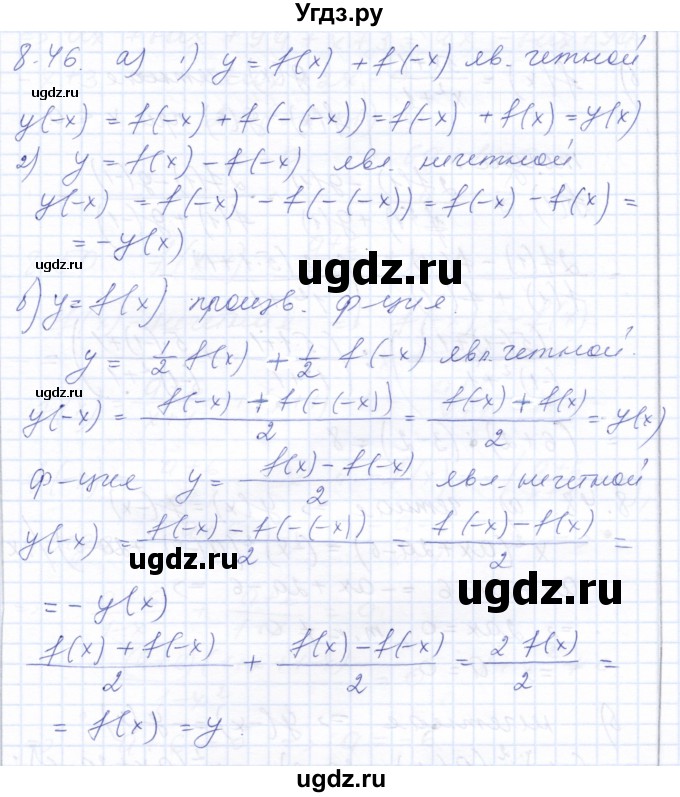 Угдз.ру
8.46. а) 1) y = f(x) + f(-x) яв. четной
ugdz.ru
y(-x) = f(-x) + f(-(-x)) = f(-x) + f(x) = y(x)
2) y = f(x) - f(-x) явл. нечетной
ugdz.ru
y(-x) = f(-x) - f(-(-x)) = f(-x) - f(x) =
= -y(x)
ugdz.ru
ugdz.ru
б) y = f(x) произв. ф-ция.
y = 1/2 f(x) + 1/2 f(-x) явл. четной.
ugdz.ru
y(-x) = (f(-x) + f(-(-x)))/2 = (f(-x) + f(x))/2 = y(x)
ф-ция y = (f(x) - f(-x))/2 явл. нечетной
y(-x) = (f(-x) - f(-(-x)))/2 = (f(-x) - f(x))/2 =
ugdz.ru
ugdz.ru
= -y(x)
(f(x) + f(-x))/2 + (f(x) - f(-x))/2 = 2 f(x)/2 =
= f(x) = y.
ugdz.ru
ugdz.ru